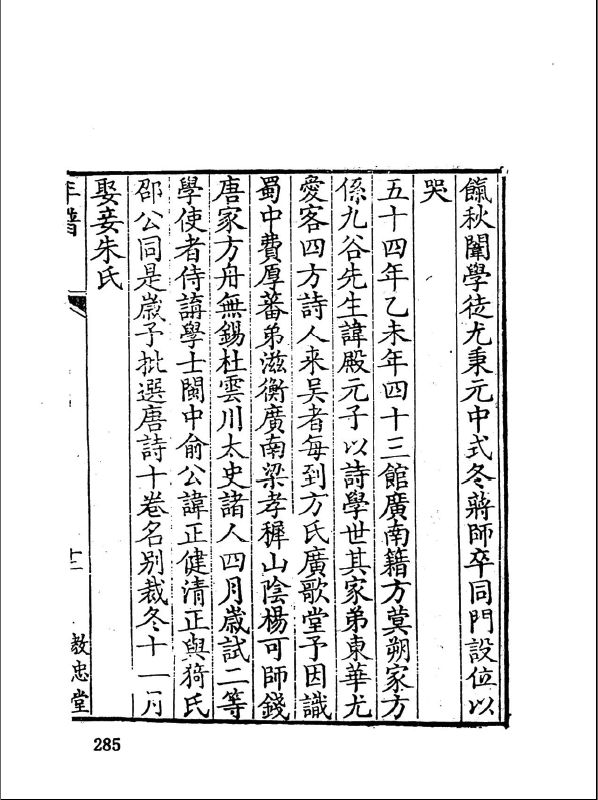 餼秋闈學徒尤秉元中式冬蔣師卒同門設位以
哭
五十四年乙未年四十三館廣南籍方蓂朔家方
係九谷先生諱殿元子以詩學世其家弟東華尤
愛客四方詩人来吴者每到方氏廣歌堂予因識
蜀中費厚蕃弟滋衡廣南梁孝穉山陰楊可師錢
唐家方舟無錫杜雲川太史諸人四月歲試二等
學使者侍講學士閩中俞公諱正健清正與猗氏
邵公同是歲予批選唐詩十卷名别裁冬十一月
娶妾朱氏
年譜
十二
教忠堂
285